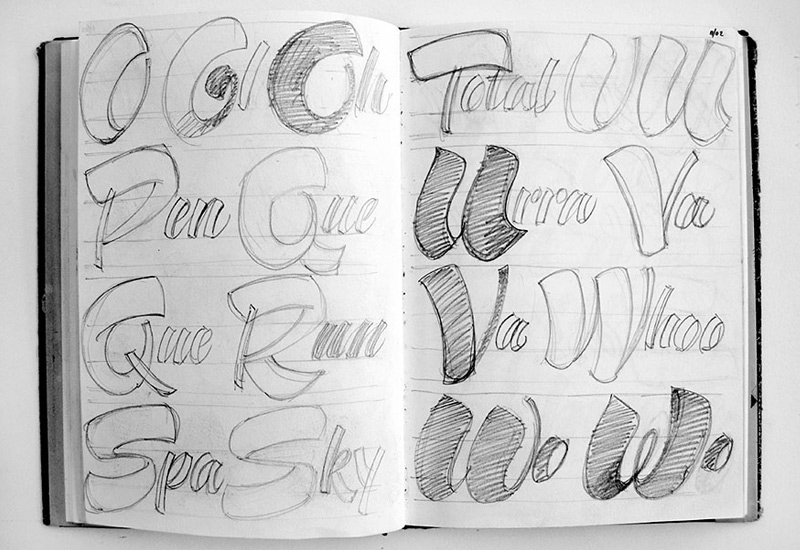 O O Oh
Pen Que
Que Run
Spa Sky
9/02
Total U U
Urra Va
Va Whoo
Wo Wo